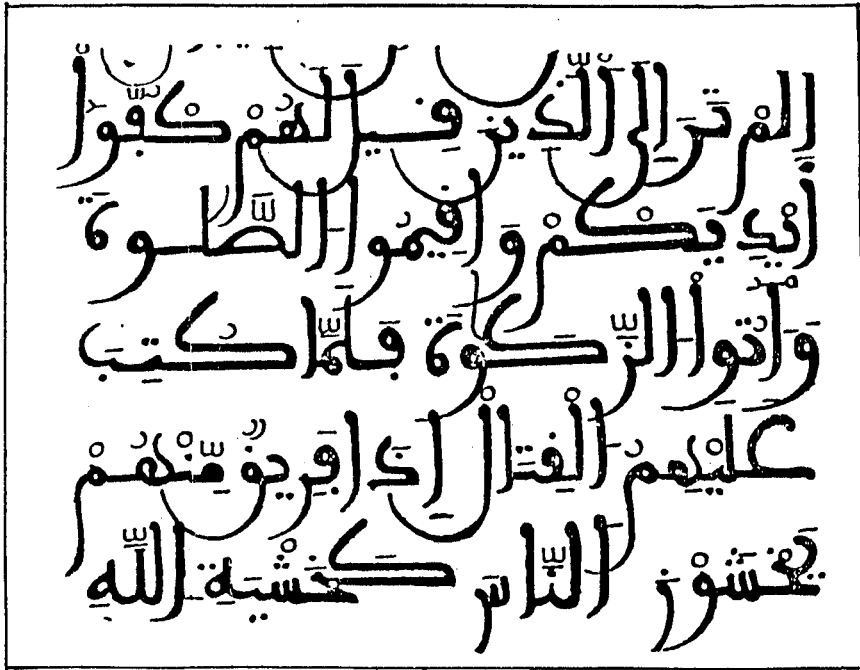 أَلَمْ تَرَ إِلَى ٱلَّذِينَ قِيلَ لَهُمْ كُفُّوا
أَيْدِيَكُمْ وَأَقِيمُوا ٱلصَّلَوٰةَ
وَءَاتُوا ٱلزَّكَوٰةَ فَلَمَّا كُتِبَ
عَلَيْهِمُ ٱلْقِتَالُ إِذَا فَرِيقٌ مِّنْهُمْ
يَخْشَوْنَ ٱلنَّاسَ كَخَشْيَةِ ٱللَّهِ